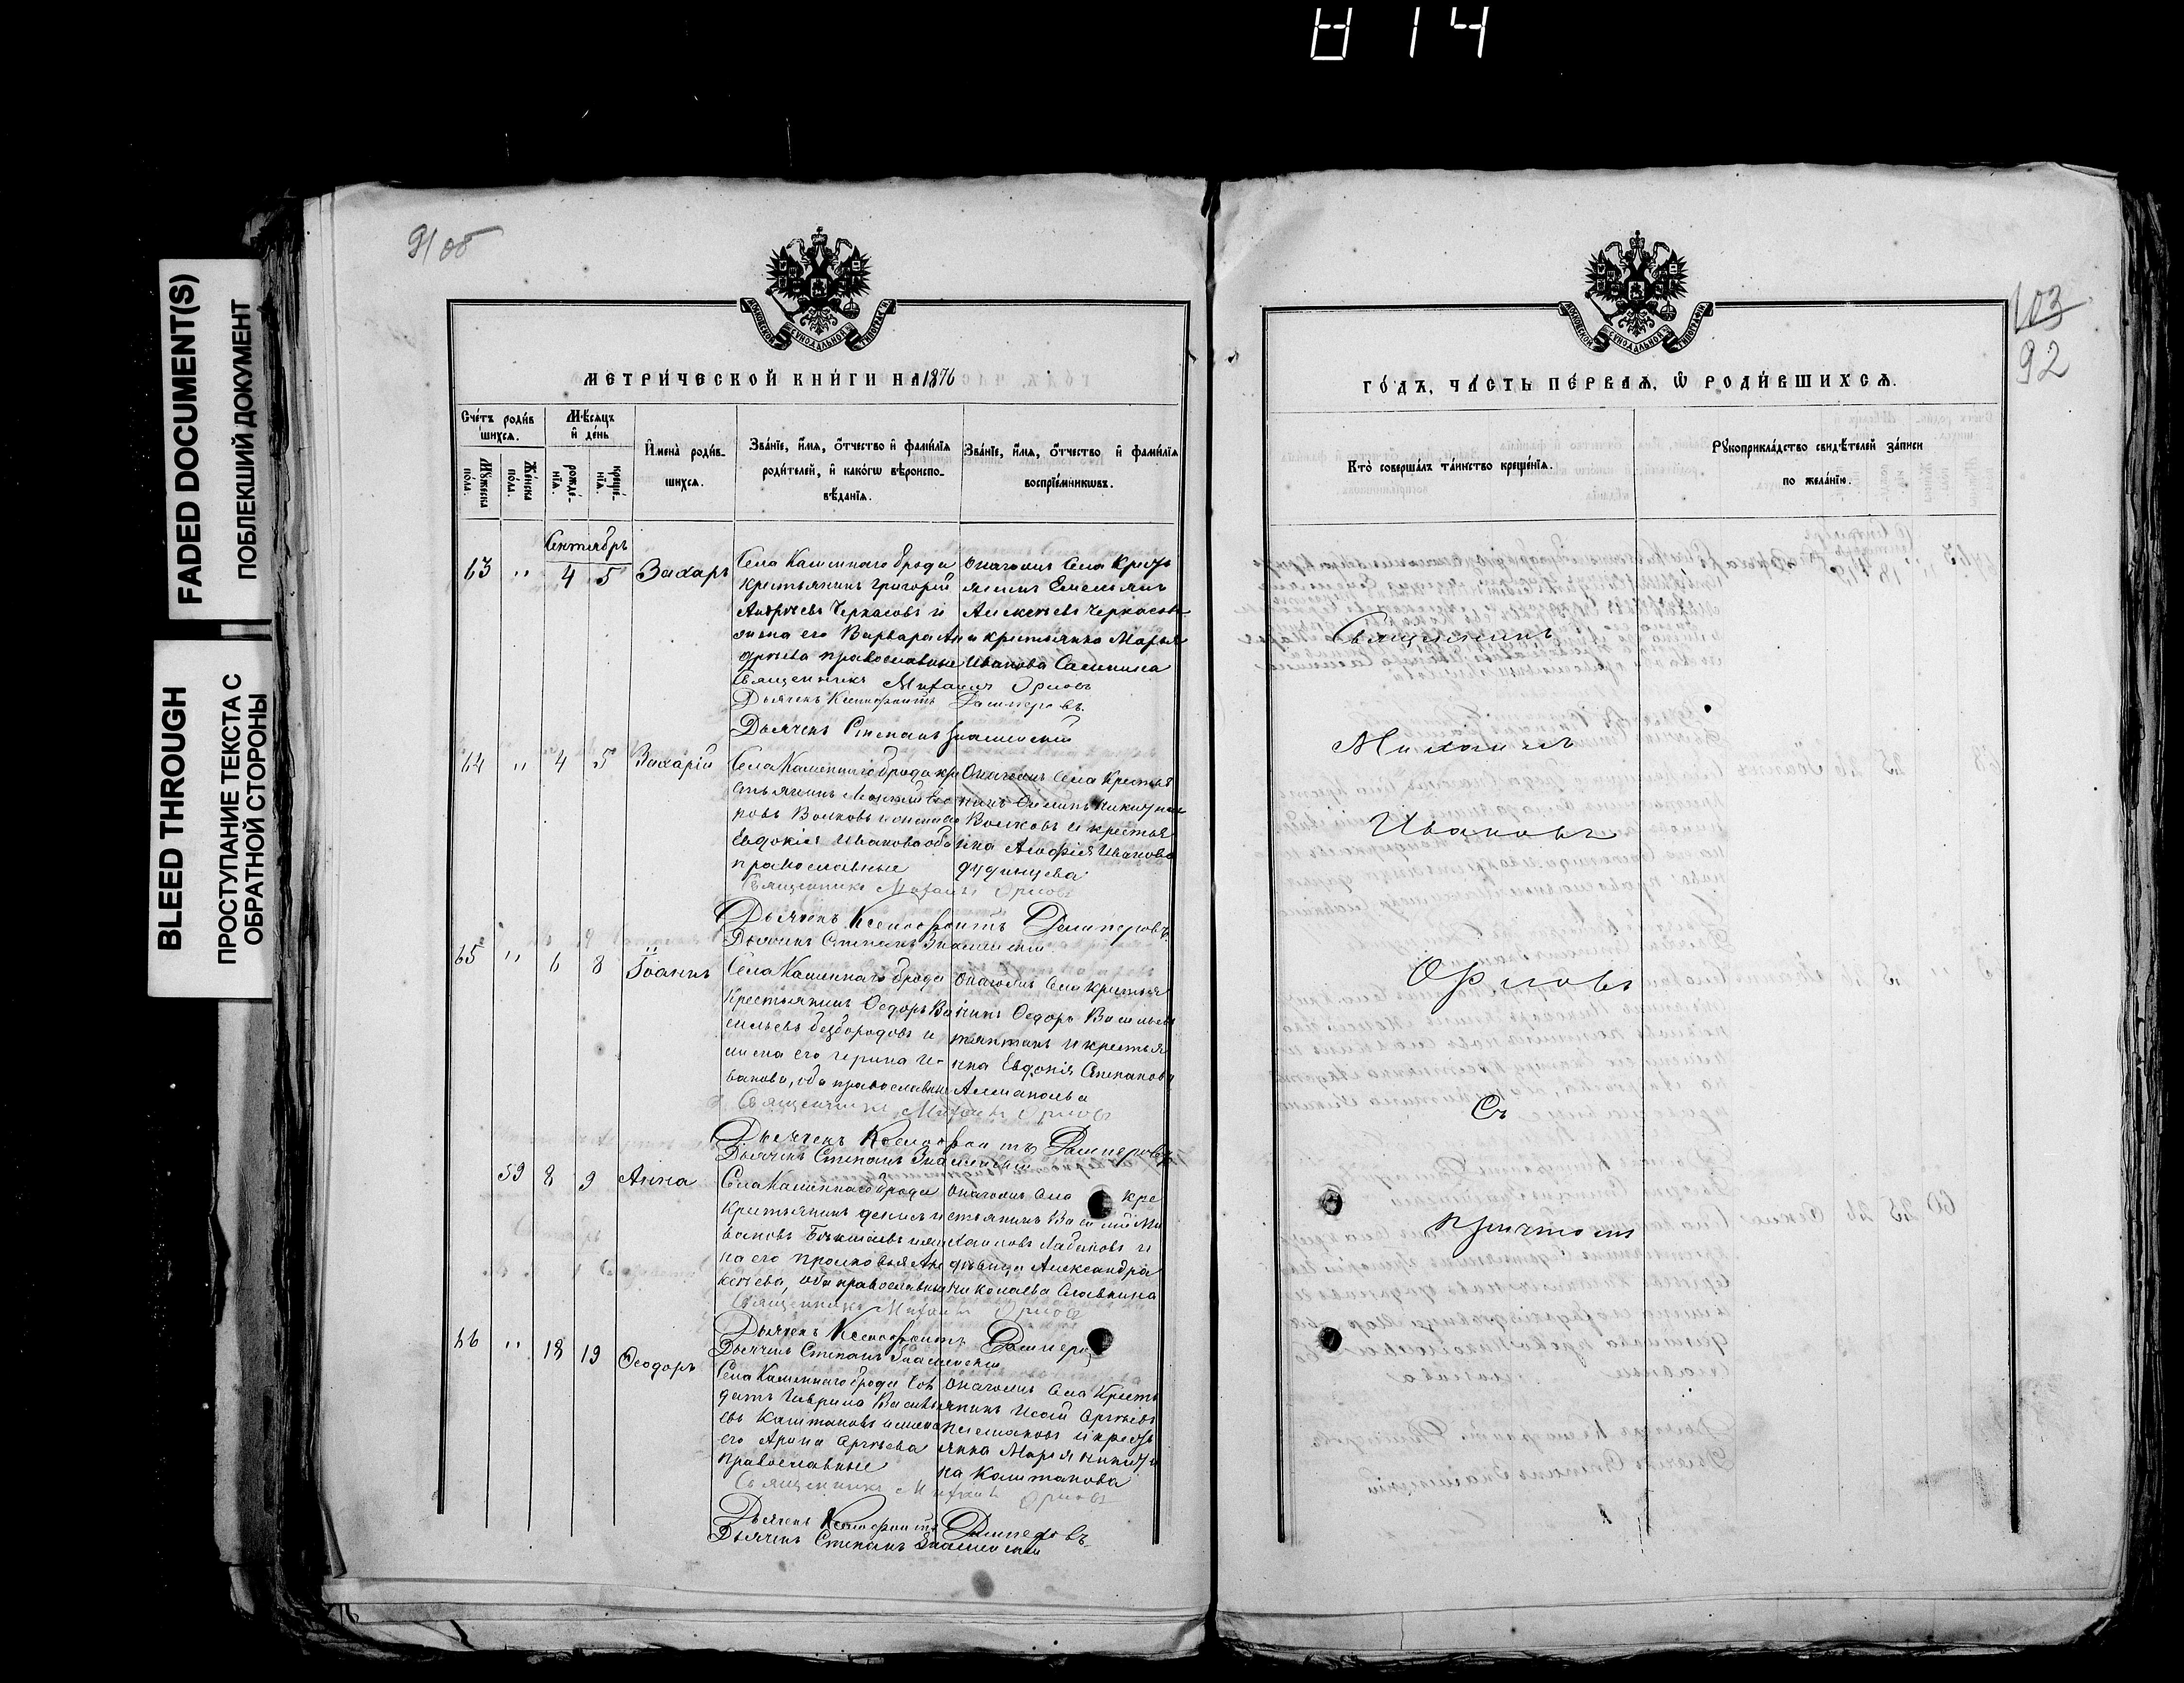 814
FADED DOCUMENT(S)
ПОБЛЕКШИЙ ДОКУМЕНТ
BLEED THROUGH
ПРОСТУПАНИЕ ТЕКСТА С
ОБРАТНОЙ СТОРОНЫ
91 об
МОСКОВСКОЙ СУНОДАЛЬНОЙ ТИПОГРАФІИ
МЕТРИ́ЧЕСКОЙ КНИ́ГИ НА 1876
Сче́тъ роди́в
шихся.
Мѣ́сяцъ
и҆ де́нь
Мꙋ́жеска
по́ла.
Же́нска
по́ла.
рожде́-
нїѧ.
креще́-
нїѧ.
И҆мена̀ роди́в-
шихсѧ.
Зва́нїе, и҆́мѧ, ѻ҆́тчество и҆ фами́лїѧ
роди́телей, и҆ како́гѡ вѣроиспо-
вѣ́данїѧ.
Зва́нїе, и҆́мѧ, ѻ҆́тчество и҆ фами́лїѧ
воспрїе́мникѡвъ.
Сентябрь
63 " 4 5 Захаръ
Села Каменнаго брода
крестьянинъ Григорій
Андреевъ Черкасовъ и
жена его Варвара Ан
дреева православные
Онагожъ села кресть
янинъ Емельянъ
Алексеевъ Черкасовъ
и крестьянка Марья
Иванова Самкина
Священникъ Михаилъ Орловъ
Дьячекъ Ксенофонтъ Дамперовъ.
Дьячекъ Степанъ Знаменскій
64 " 4 5 Захарій
Села Каменнаго брода кре
стьянинъ
ровъ Волковъ и жена его
Евдокія Иванова оба
православные
Онагожъ села крестья
нинъ Филипъ Никитинъ
Волковъ и крестья
нка Иванова
Дудинцева
Священникъ Михаилъ Орловъ
Дьячекъ Ксенофонтъ Дамперовъ.
Дьячекъ Степанъ Знаменскій
65 " 6 8 Іоаннъ
Села Каменнаго брода
крестьянинъ Ѳедоръ Ва
сильевъ Безбородовъ и
жена его Ирина И-
ванова, оба православные
Онагожъ села крестья
нинъ Ѳедоръ Васильевъ
и крестья
нка Евдокія Степанова
Священникъ Михаилъ Орловъ
Дьячекъ Ксенофонтъ Дамперовъ
Дьячекъ Степанъ Знаменскій
59 8 9 Анна
Села Каменнаго брода
крестьянинъ Денисъ И
вановъ и же
на его Просковья Але
ксеева, оба православные
Онагожъ села кре
стьянинъ Василій Ми
хаиловъ и
дѣвица Александра
Николаева Славкина
Священникъ Михаилъ Орловъ
Дьячекъ Ксенофонтъ Дамперовъ
Дьячекъ Степанъ Знаменскій
66 " 18 19 Ѳеодоръ
Села Каменнаго брода Сол
датъ Гаврило Василь
евъ Каштановъ и жена
его Арина Сергѣева
православные
Онагожъ села кресть
янинъ Исай Сергѣевъ
и кресть
янка Марія Никити
на Каштанова
Священникъ Михаилъ Орловъ
Дьячекъ Ксенофонтъ Дамперовъ.
Дьячекъ Степанъ Знаменскій
103
92
МОСКОВСКОЙ СУНОДАЛЬНОЙ ТИПОГРАФІИ
ГО́ДЪ, ЧА́СТЬ ПЕ́РВАѦ, Ѡ҆ РОДИ́ВШИХСѦ.
Кто̀ соверша́лъ та́инство креще́нїѧ.
Рꙋкоприкла́дство свидѣ́телей за́писи
по жела́нїю.
Священникъ
Михаилъ
Ивановъ
Орловъ
Съ
причтомъ